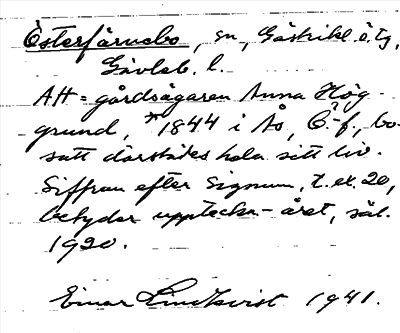 Österfärnebo, sn, Gästrikl. ö. tg,
Gävleb. l.
AH = gårdsägaren Anna Hög-
grund, * 1844 i Ås, Ö.-f., bo-
satt därstädes hela sitt liv.
Siffran efter Signum, t. ex. 20,
betyder uppteckn-året, säl.
1920.
Einar Lindkvist 1941.